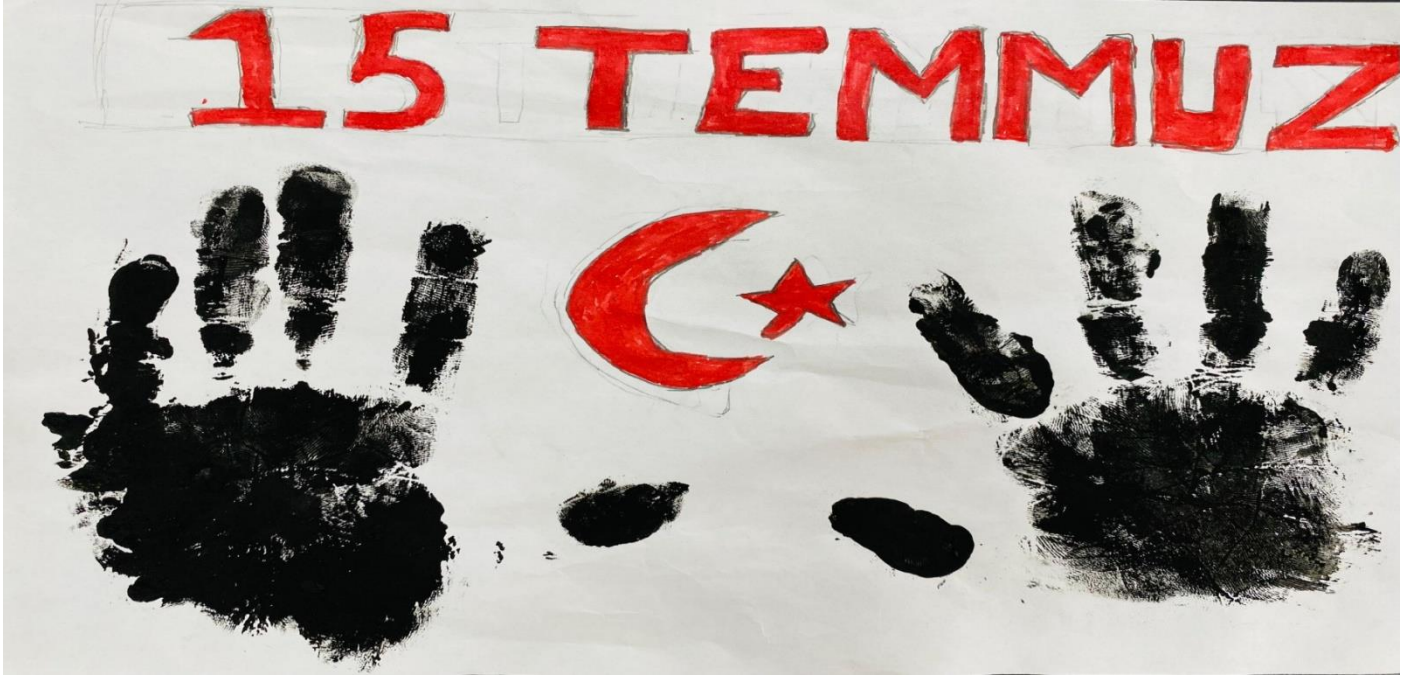 15 TEMMUZ